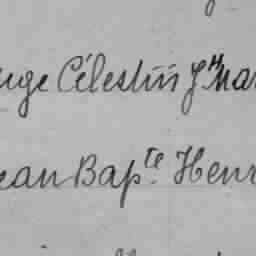 uge Célestin Jʰ Mar
ean Bapᵗᵉ Henr